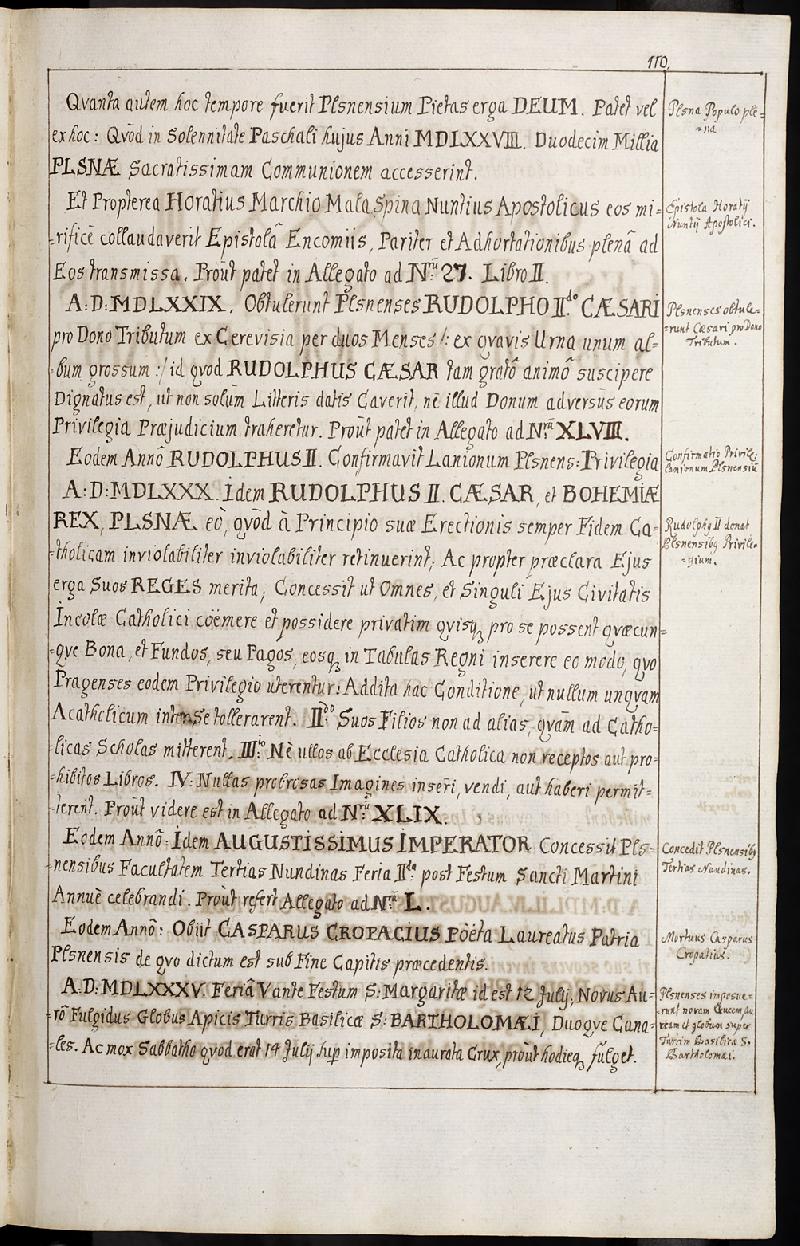 110.
Qvanta autem hoc tempore fuerit Plsnensium Pietas erga DEUM. Patet vel
ex hoc: Qvod in Solennitate Paschali hujus Anni MDLXXVIII. Duodecim Millia
PLSNÆ Sacratissimam Communionem accesserint.
Et Propterea Horatius Marchio Mala Spina Nuntius Apostolicus eos mi-
-rificè collaudaverit Epistolâ Encomiis, Pariter et Adhortationibus plenâ ad
Eos transmissa. Proùt patet in Allegato ad Nrũ 27. Libro II.
A.D: MDLXXIX. Obtulerunt Plsnenses RUDOLPHO II.do CÆSARI
pro Dono Tributum ex Cerevisia per duos Menses /: ex qvavis Urna unum al-
-bum grossum :/ id qvod RUDOLPHUS CÆSAR tam gratô animô suscipere
Dignatus est, ut non solùm Litteris datis Caverit, nè illud Donum adversus eorum
Privilegia Præjudicium traheretur. Proùt patet in Allegato ad Nrũ XLVIII.
Eodem Annô RUDOLPHUS II. Confirmavit Lanionum Plsnens: Privilegia
A:D: MDLXXX. Idem RUDOLPHUS II. CÆSAR, et BOHEMIÆ
REX, PLSNÆ eò, qvòd à Principio suæ Erectionis semper Fidem Ca-
-tholicam inviolabiliter inviolabiliter retinuerint, Ac propter præclara Ejus
erga Suos REGES merita, Concessit ut Omnes, et Singuli Ejus Civitatis
Incolæ Catholici coëmere et possidere privatim qvisq, pro se possent qvæcun-
-qve Bona, et Fundos, seu Pagos, eosq, in Tabulas Regni inserere eo modo, qvo
Pragenses eodem Privilegio uterentur: Addita hac Conditione, ut nullum unqvam
Acatholicum inter Se tollerarent. IIdo Suos Filios non ad alias, qvàm ad Catho-
licas Scholas mitterent. IIItio Nè ullos ab Ecclesia Catholica non receptos aut pro-
-hibitos Libros. IV: Nullas probrosas Imagines inseri, vendi, aut haberi permit-
-terent. Proùt videre est in Allegato ad Nrũ XLIX.
Eodem Annô: Idem AUGUSTISSIMUS IMPERATOR Concessit Pls-
-nensibus Facultatem Tertias Nundinas Feria IIda post Festum Sancti Martini
Annuè celebrandi. Proùt refert Allegato ad Nrũ L.
Eodem Annô: Obiit CASPARUS CROPACIUS Poëta Laureatus Patria
Plsnensis de qvo dictum est sub Fine Capitis præcedentis.
A.D: MDLXXXV. Feriâ V ante Festum S: Margaritæ id est 12 Julij, Novus Au-
rô Fulgidus Globus Apicis Turris Basilicæ S: BARTHOLOMÆI, Duoqve Cana-
-les. Ac mox Sabbatho qvod erat 14 Julij sup imposita inaurata Crux, proùt hodieq, fulget.
Plsna Populo ple-
-na
Epistola Horatij
Nuntij Apostolici.
Plsnenses obtule-
-runt Cæsari pro Dono
Tributum.
Confirmatio Privile:
Lanionum Plsnensiũ
Rudolphq II donat
Plsnensibq Privile-
-gium.
Concedit Plsnensibq
Tertias Nundinas.
Mortuus Casparus
Cropatius.
Plsnenses imposue-
-runt novam Crucem au-
ream et globum super
Turrim Basilica S.
Bartholomæi.